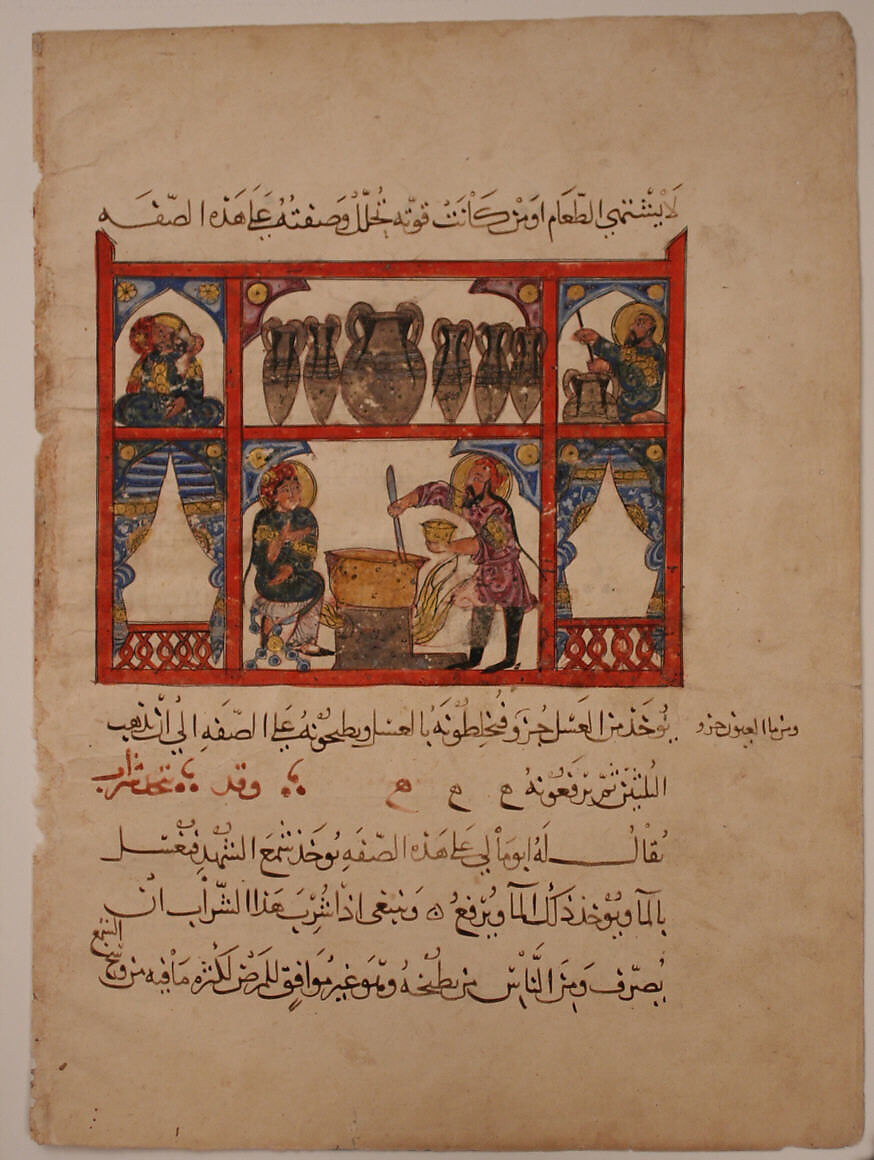 لَا يَشْتهي الطّعَام اوَمَنْ كَانَتْ قوّته تُحُلّلُ وَصفَتهُ عَلَى هَذه الصّفَه
يُوخَذ من العَسَل جُزو فيُخلِطُونَهُ بالعسل ويطبخونهُ عَلى الصّفَهِ الى ان يَذهب
ومن ما العيون جزو
الثلثين ثمّ يَرفَعُونهُ ح ح ح وقد يتخذ شراب
يُقال لَهُ ابومالي عَلى هَذه الصّفَهِ يُوخَذ شمَع الشهدِ فيغسَل
بالمآ ويُوخذ ذلكَ المآ ويُرفعُ وَينبغى اذا شُرِبَ هَذا الشّرَاب انْ
يُصرّف وَمِنَ النَّاسِ من يطبخهُ وهوَ غيرُ مُوَافِقٍ للمَرضَى لكَثره مَا فيه من وسخ
الشمع